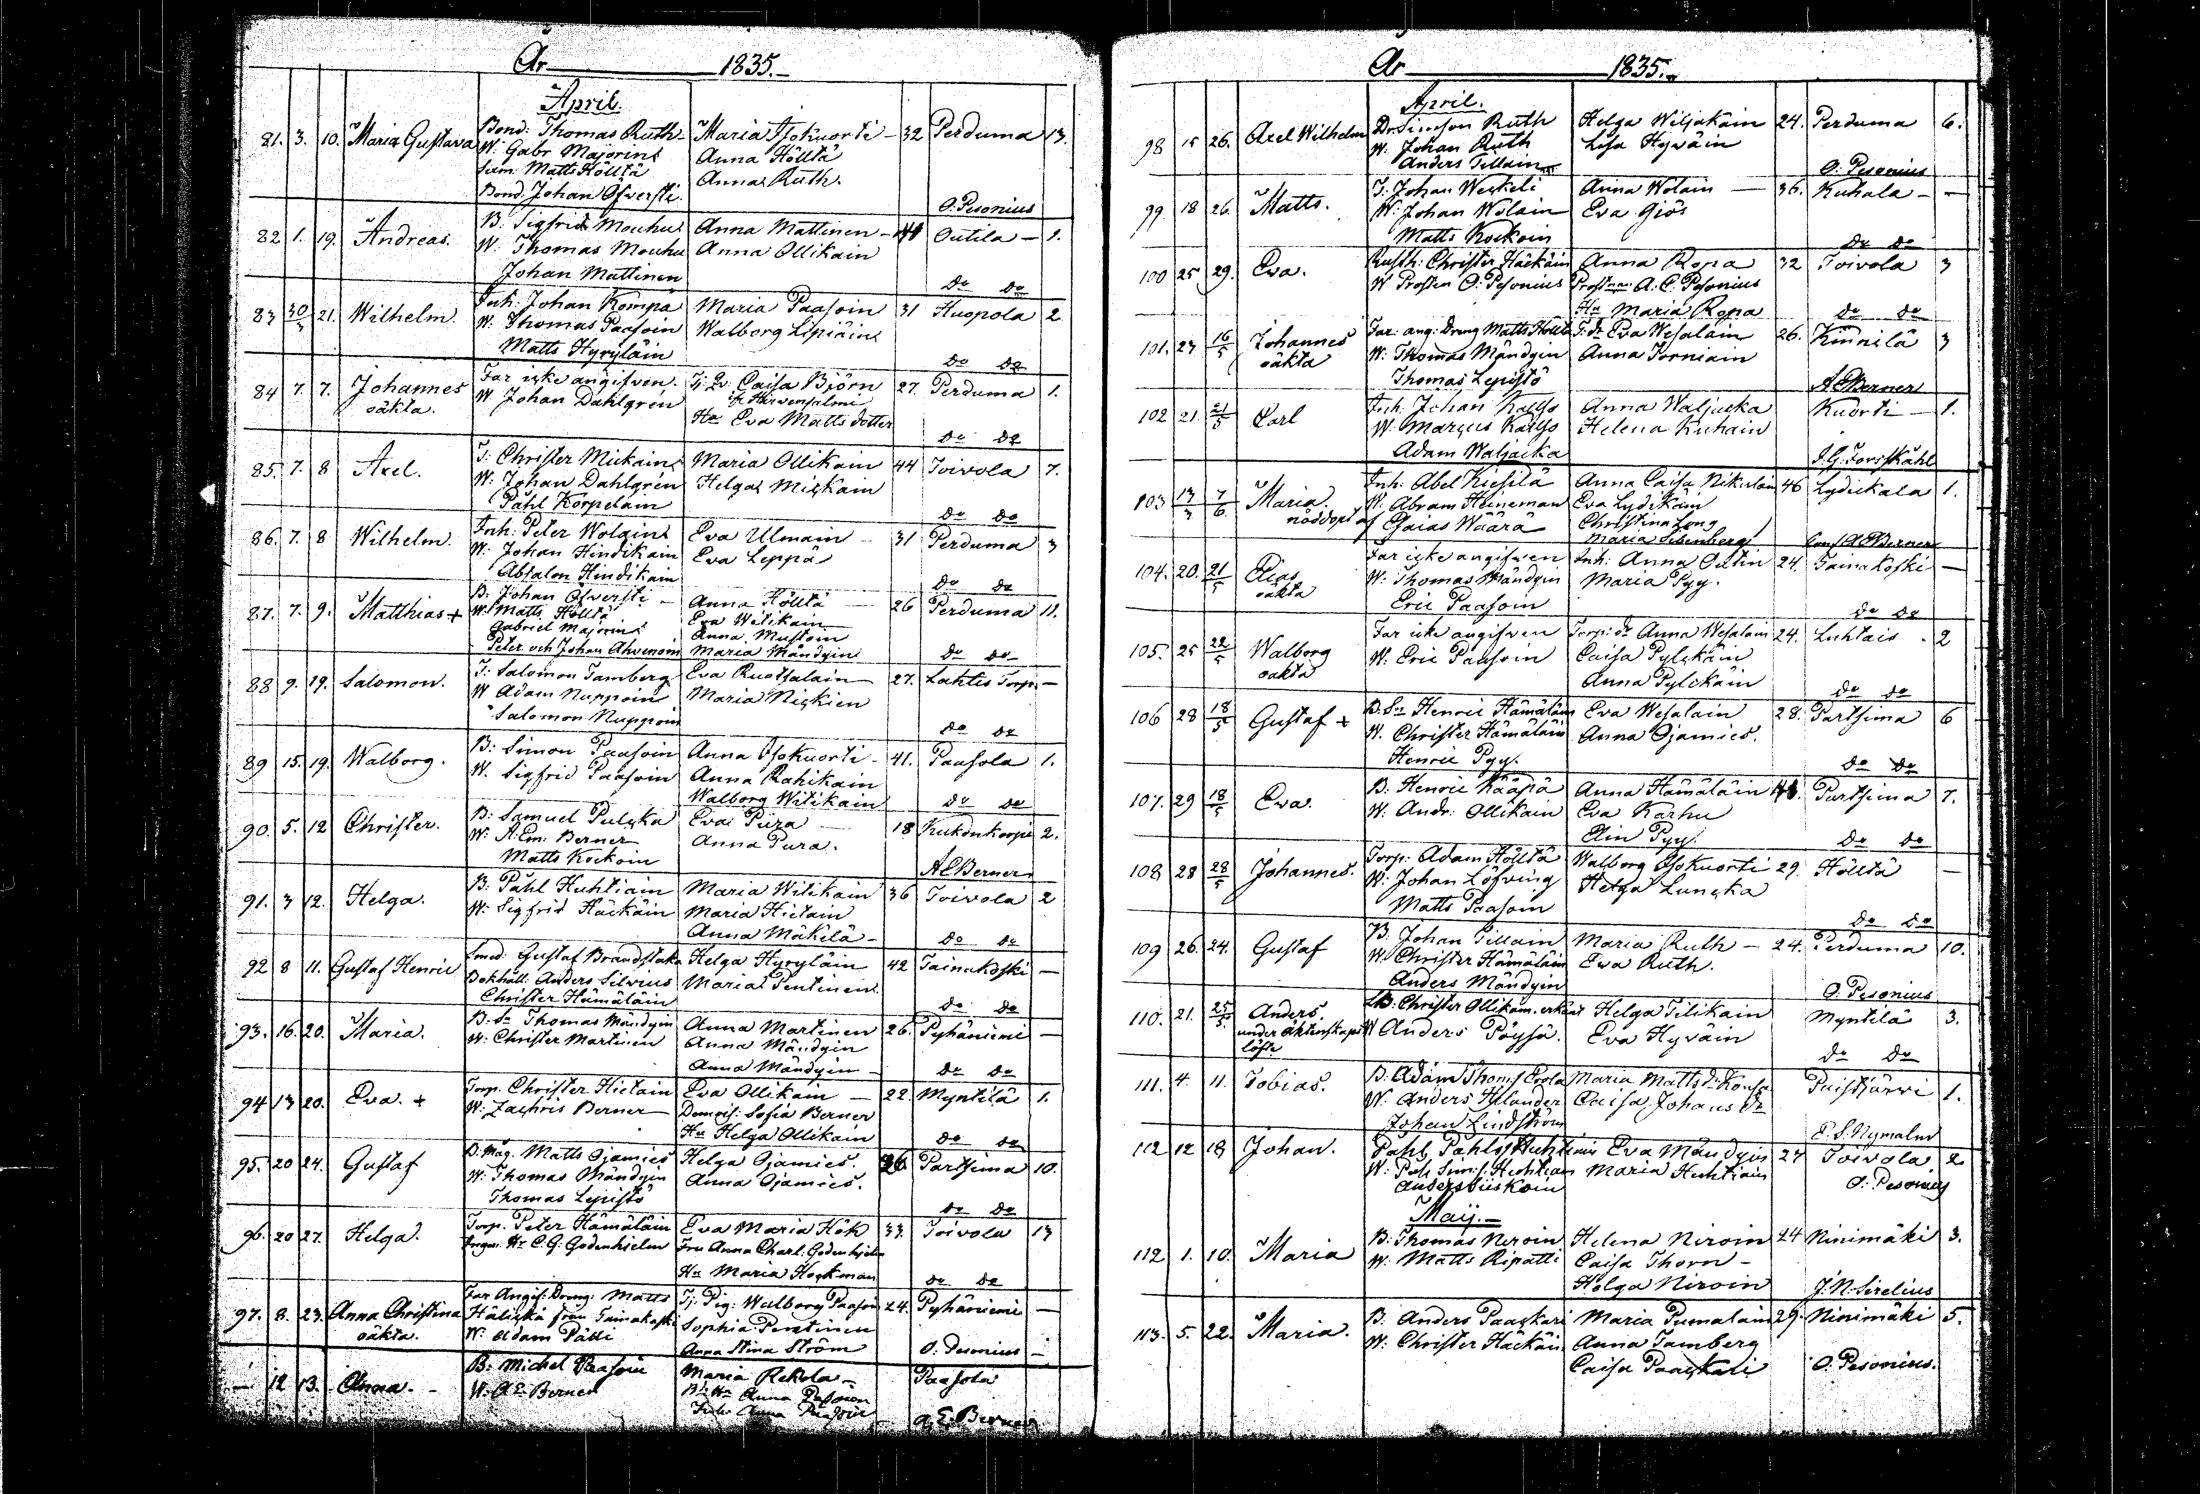 År 1835.
April.
81. 3. 10. Maria Gustava Bond: Thomas Ruth Maria Tsokuorti 32 Perduma 13.
W: Gabr Majorin Anna Höltta
Matts Hölttä Anna Ruth.
Bond: Johan Öfversti. O. Pesonius
82 1. 19. Andreas. B: Sigfrid Mouhu Anna Mattinen 44 Outila 1.
W. Thomas Mouhu Anna Ollikain
Johan Mattinen do do
83 30/3 21. Wilhelm. Inh: Johan Kompa Maria Paasoin 31 Huopola 2
W: Thomas Paasoin Walborg Lipiäin
Matts Hyryläin do do
84 7. 7. Johannes Far icke angifven. Caisa Björn 27. Perduma 1.
oäkta. W Johan Dahlgrén fr. Hirvensalmi
Hu Eva Mattsdotter do do
85. 7. 8 Axel. T: Christer Mickain Maria Ollikain 44 Toivola 7.
W: Johan Dahlgrén Helga Mickain
Påhl Korpelain do do
86. 7. 8 Wilhelm. Inh: Peter Wolain Eva Ulmain 31 Perduma 3
W: Johan Hindikain Eva Leppä
Absalon Hindikain do do
87. 7. 9. Matthias + B: Johan Öfversti Anna Hölttä 26 Perduma 11.
W: Matts Hölttä Eva Witikain
Gabriel Majorin Anna Mustoin
Peter och Johan Ahvenoin Maria Mändyin do do
88 9. 19. Salomon. T: Salomon Tamberg Eva Ruotsalain 27. Lahtis Torp. —
W Adam Nuppoin Maria Nickien
Salomon Nuppoin do do
89 15. 19. Walborg. B: Simon Paasoin Anna Tsokuorti 41. Paasola 1.
W. Sigfrid Paasoin Anna Rahikain
Walborg Witikain do do
90. 5. 12 Christer. B: Samuel Pulcka Eva Pura 18 Kukonkorpi 2.
W: A. Em. Berner Anna Pura.
Matts Kockoin AEBerner
91. 3 12. Helga. B: Påhl Huhtiain Maria Witikain 36 Toivola 2
W: Sigfrid Häckäin Maria Hietain
Anna Mäkelä do do
92 8 11. Gustaf Henric Smed: Gustaf Brandstaka Helga Hyryläin 42 Tainakoski —
Bokhåll: Anders Silvius Maria Pentinen
Christer Hämäläin do do
93. 16. 20. Maria. B: Sn Thomas Mändyin Anna Martinen 26. Pyhäniemi —
W: Christer Martinen Anna Mändyin
Anna Mändyin do do
94 13 20. Eva. + Torp. Christer Hietain Eva Ollikain 22 Myntilä 1.
W: Zachris Berner Demois: Sofia Berner
Hu Helga Ollikain do do
95. 20 24. Gustaf B: Måg. Matts Ojamies Helga Ojamies. 26 Partsima 10.
W: Thomas Mändyin Anna Ojamies.
Thomas Lepistö do do
96. 20 27. Helga. Torp. Peter Hämäläin Eva Maria Hök 33. Toivola 13
Hr C. G: Godenhjelm Fru Anna Charl: Godenhjelm
Hu Maria Hockman do do
97. 8. 23. Anna Christina Far Angif: Dreng: Matts Tj: Pig: Walborg Paasoin 24. Pyhäniemi —
oäkta. från Tainakoski Sophia Pentinen
W: Adam Pätti Anna Stina Ström O. Pesonius
— 12 13. Anna. B: Michel Paasoin Maria Rekola Paasola
W. A E Berner Anna Paasoin
Anna Paasoin A. E. Berner
År 1835.
April.
98 15 26. Axel Wilhelm Dr: Simson Ruth Helga Wiljakain 24. Perduma 6.
W: Johan Ruth Lisa Hyväin
Anders Tillain O. Pesonius
99 18 26. Matts. T: Johan Weckeli Anna Wolain 36. Kuhala —
W: Johan Wolain Eva Gjös
Matts Kockoin do do
100 25 29. Eva. Rusth: Christer Häckäin Anna Ropa 32 Toivola 3
W Prosten O: Pesonius Prostinnan A. C. Pesonius
Hu Maria Ropa do do
101. 23 16/5 Johannes Far: ang: Dreng Matts Hölttä T: dr Eva Wesalain 26. Kinnilä 3
oäkta W: Thomas Mändyin Anna Torniain
Thomas Lepistö AEBerner
102 21. 21/5 Carl Inh: Johan Kaiso Anna Waljacka Kuorti 1.
W. Marcus Kaiso Helena Kuhain
Adam Waljacka J. G. Forsskåhl
103 13/3 7/6 Maria. Inh: Abel Kiesilä Anna Caisa Nikulain 46 Lydickala 1.
nöddöpt W. Abram Heineman Eva Lydikäin
af Esaias Wäärä Christina Long
Maria Sebenberg AEBerner
104. 20. 21/5 Elias Far icke angifven Inh: Anna Outin 24. Tainakoski —
oäkta W: Thomas Mändyin Maria Pyy.
Eric Paasoin do do
105. 25 22/5 Walborg Far icke angifven Torp: dr Anna Wesalain 24. Luhtais 2
oäkta W: Eric Paasoin Caisa Pylckäin
Anna Pylckäin do do
106 28 18/5 Gustaf + B. Sn Henric Hämäläin Eva Wesalain 28. Partsima 6
W. Christer Hämäläin Anna Ojamies.
Henric Pyy. do do
107. 29 18/5 Eva. B. Henric Kääpä Anna Hämäläin 41. Partsima 7.
W: Andr: Ollikain Eva Karhu
Elin Pyy. do do
108 28 28/5 Johannes. Torp: Adam Hölttä Walborg Tsokuorti 29. Hölttä —
W: Johan Löfving Helga Luncka
Matts Paasoin do do
109 26. 24. Gustaf B. Johan Tillain Maria Ruth 24. Perduma 10.
W. Christer Hämäläin Eva Ruth.
Anders Mändyin O. Pesonius
110. 21. 25/5. Anders. B: Christer Ollikain. erkänt Helga Tilikain Myntilä 3.
under äktenskaps W Anders Pöysä. Eva Hyväin
löfte do do
111. 4. 11. Tobias. B: Adam Thoms Eerola Maria Matts dr Kousa Puistjärvi 1.
W. Anders Helander Caisa Johans dr
Johan Lindström E. S. Nymalm
112 12 18 Johan. Påhl Påhls Huhtiain Eva Mändyin 27 Toivola 2.
W: Påhl Sim: s. Huhtiain Maria Huhtiain O: Pesonius
Anders Siiskoin
Maij.
112 1. 10. Maria B: Thomas Niroin Helena Niroin 24 Ninimäki 3.
W: Matts Ripatti Caisa Thorn
Helga Niroin J. N. Sirelius
113. 5. 22. Maria. B: Anders Paaskari Maria Pumalain 29. Ninimäki 5.
W: Christer Häckäin Anna Tamberg
Caisa Paaskari O. Pesonius.